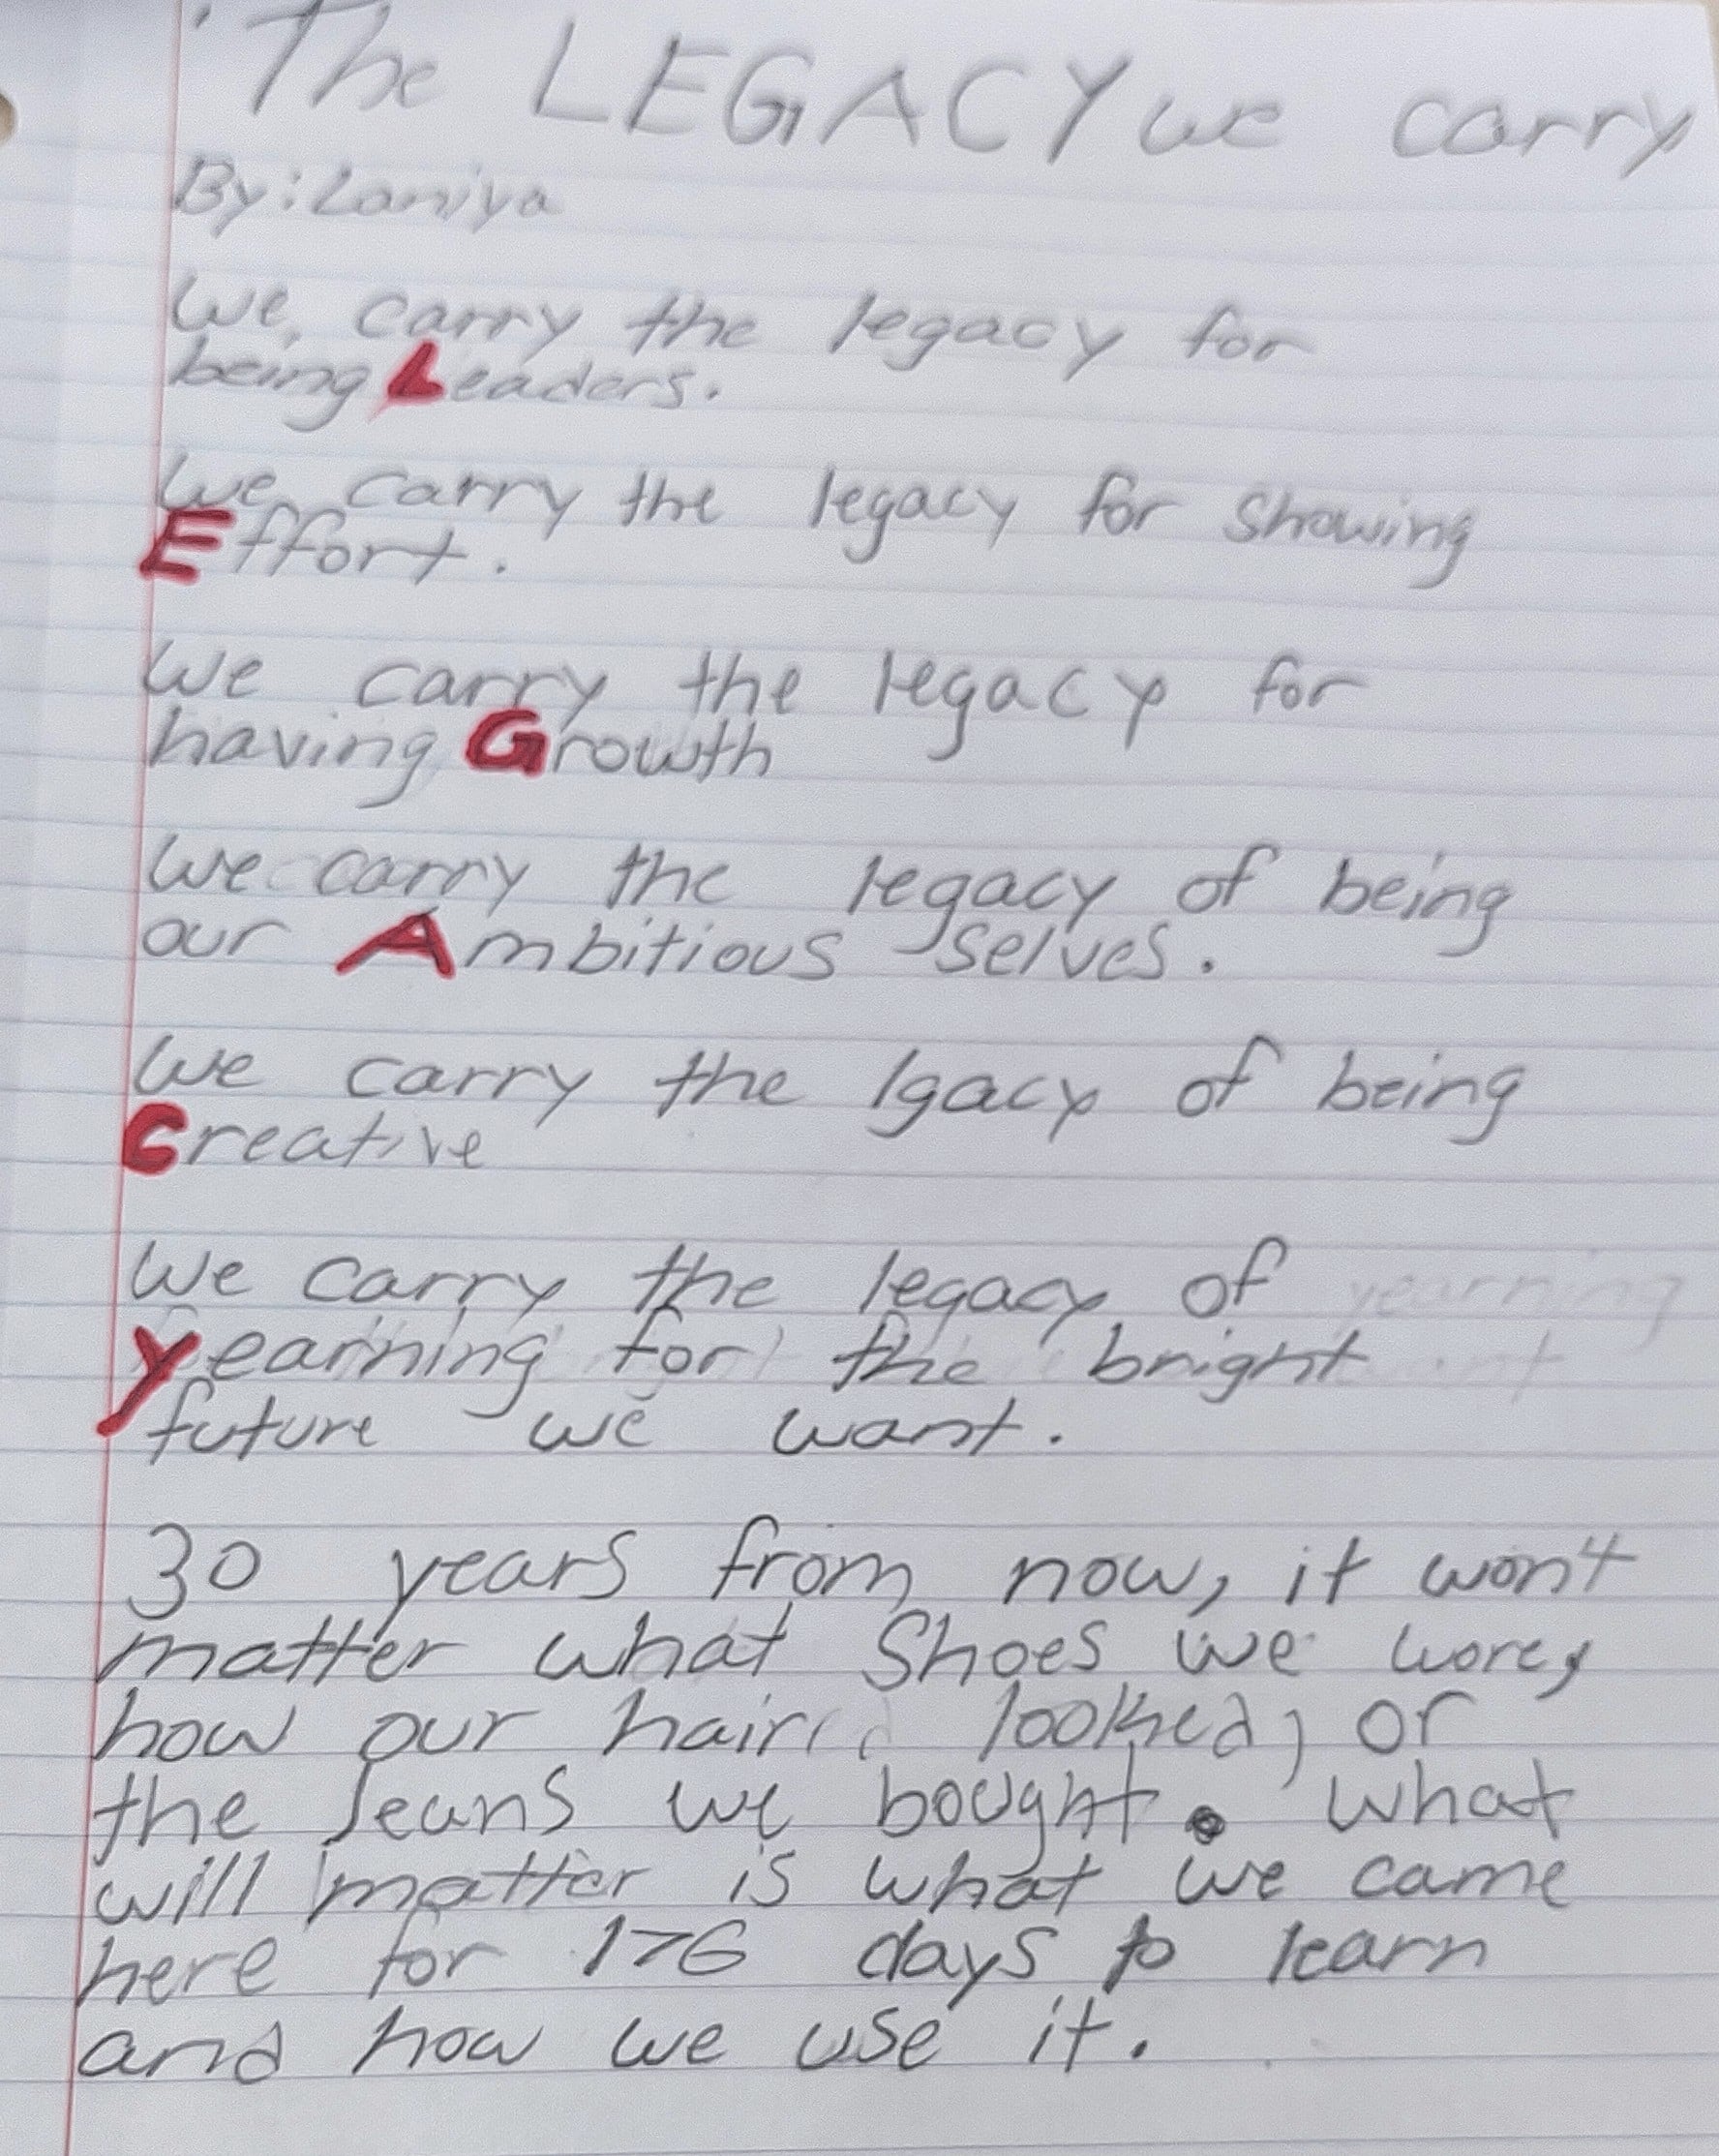 The LEGACY we carry
By: Laniya
We carry the legacy for
being Leaders.
We carry the legacy for showing
Effort.
We carry the legacy for
having Growth
We carry the legacy of being
our Ambitious selves.
We carry the lgacy of being
Creative
We carry the legacy of yearning
Yearning for the bright
future we want.
30 years from now, it won't
matter what Shoes we wore,
how our hair looked, or
the Jeans we bought. What
will matter is what we came
here for 176 days to learn
and how we use it.